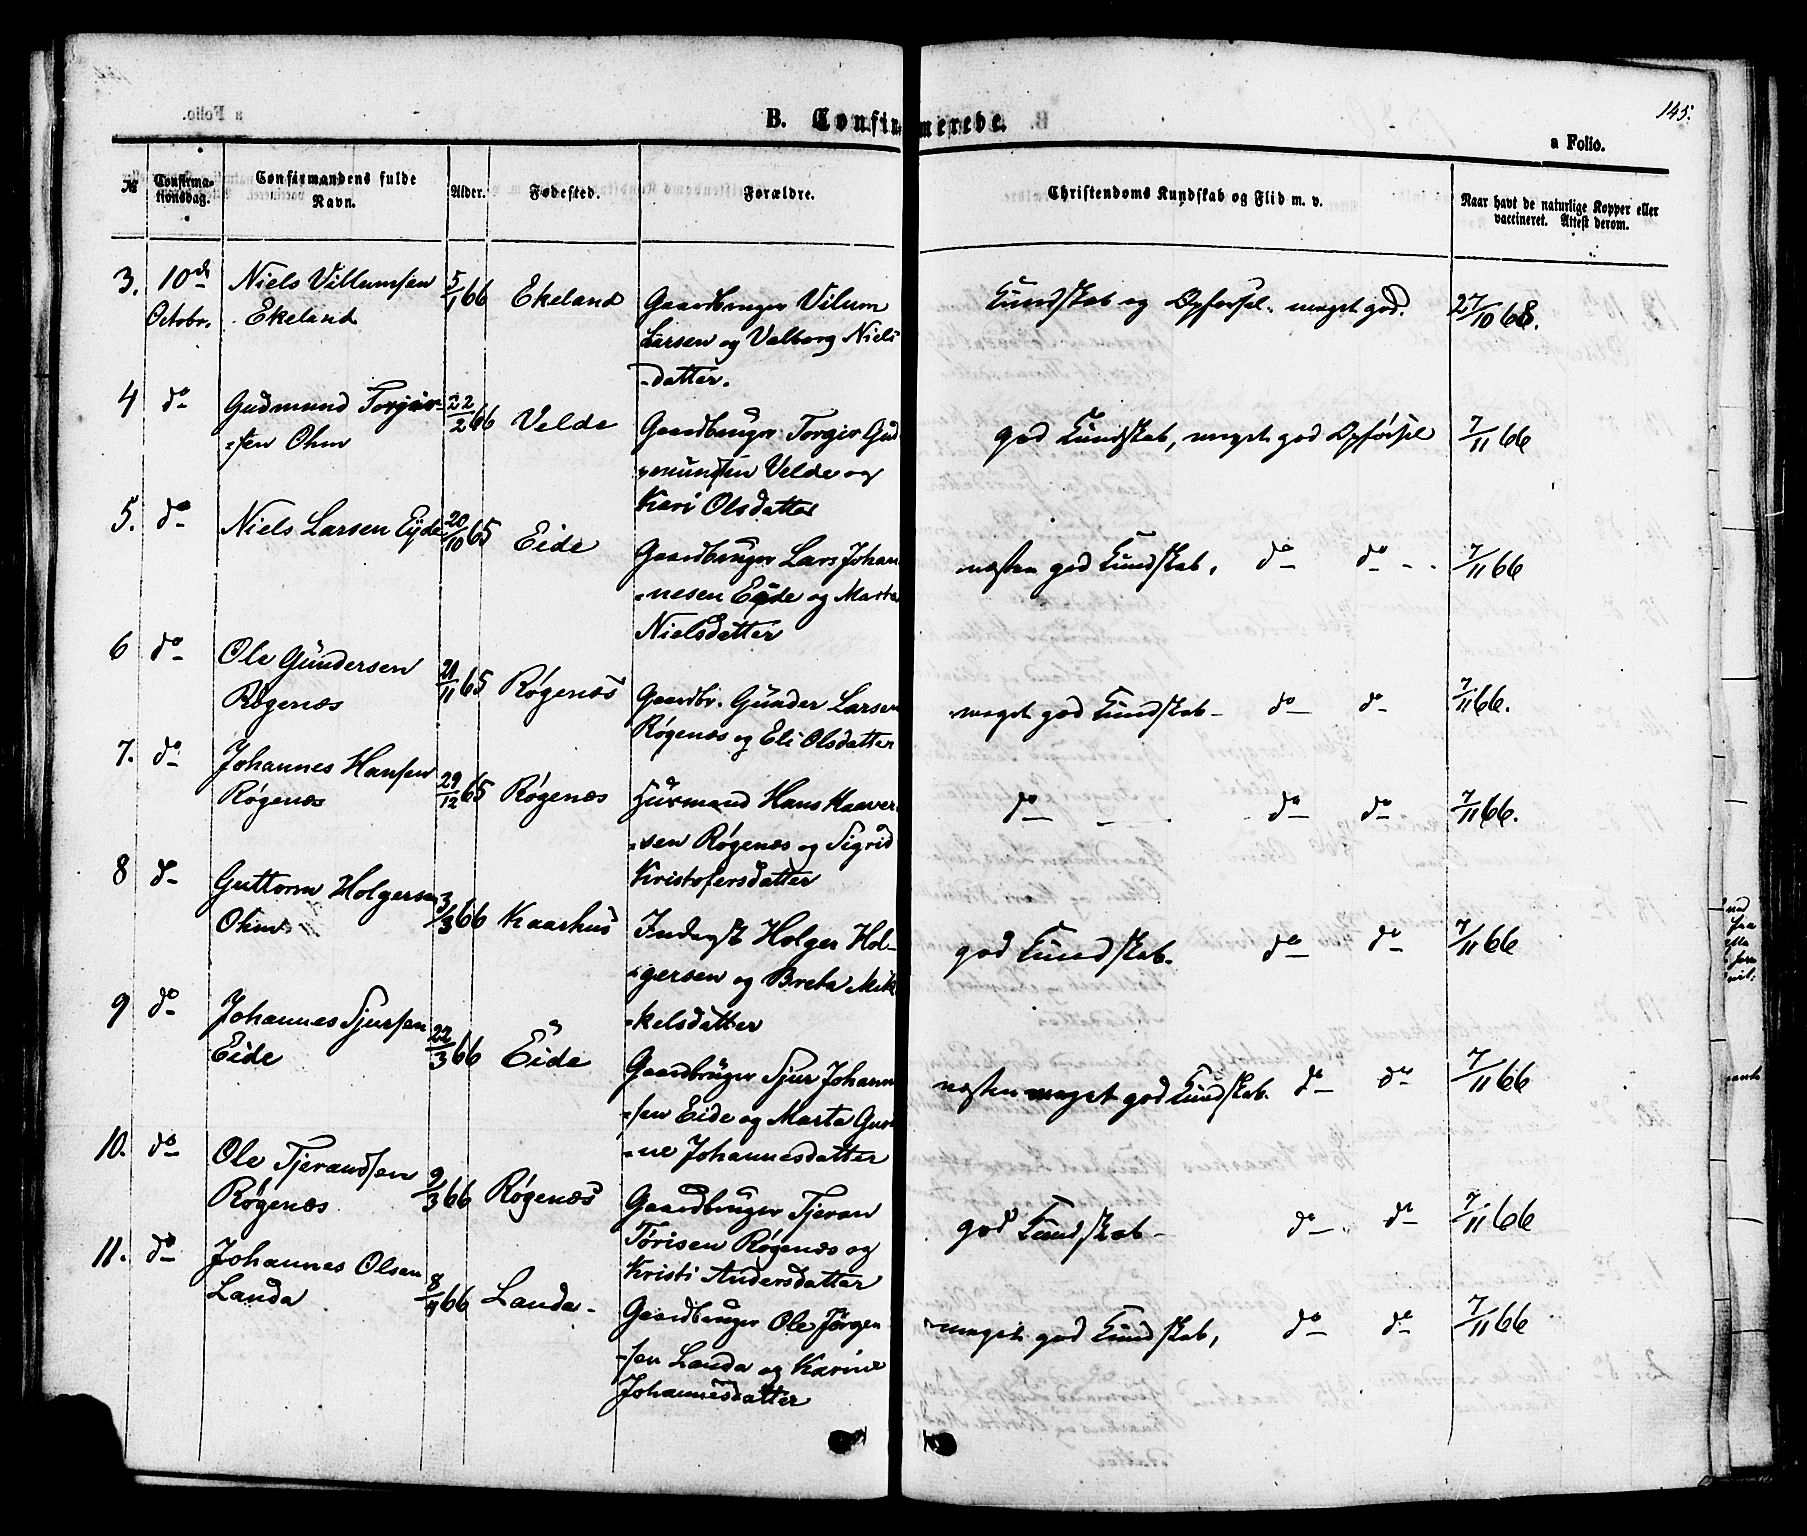 B. Confirmerede.
145.
a Folio.
№
Confirma-
tionsdag.
Confirmandens fulde
Navn.
Alder.
Fødested.
Forældre.
Christendoms Kundskab og Flid m. v.
Naar havt de naturlige Kopper eller
vaccineret. Attest derom.
3. 10de Niels Villumsen 5/1 66 Ekeland Gaardbruger Vilum Kundskab og Opførsel meget god. 27/10 68.
Octobr. Ekeland Larsen og Valborg Niels
-datter.
4 do Gudmund Torgier- 22/2 66 Velde Gaardbruger Torgir Gud god Kundskab, meget god Opførsel 7/11 66
-sen Ohm -munsen Velde og
Kari Olsdatter
5. do Niels Larsen Eyde 20/10 65 Eide Gaardbruger Lars Johan næsten god Kundskab, do do 7/11 66
-nesen Eide og Marta
Nielsdatter
6 do Ole Gundersen 21/11 65 Røgenæs Gaardbr. Gunder Larsen meget god Kundskab- do do 7/11 66.
Røgenæs Røgenæs og Eli Olsdatter
7. do Johannes Hansen 29/12 65 Røgenæs Huusmand Hans Haaver do do do 7/11 66.
Røgenæs -sen Røgenæs og Sigrid
Kristofersdatter
8 do Guttorm Holgersen 3/3 66 Kaarhus Inderst Holger Hol- god Kundskab. do do 7/11 66
Ohm -gersen og Breta Mik
-kelsdatter
9 do Johannes Sjursen 22/3 66 Eide Gaardbruger Sjur Johann næsten meget god Kundskab. do do 7/11 66
Eide -sen Eide og Marta Gur
-ne Johannesdatter
10. do Ole Tjerandsen 9/3 66 Røgenæs Gaardbruger Tjeran god Kundskab- do do 7/11 66
Røgenæs Tørisen Røgenæs og
Kristi Andersdatter
11. do Johannes Olsen 8/4 66 Landa- Gaardbruger Ole Jørgen meget god Kundskab, do do 7/11 66
Landa -sen Landa og Karine
Johannesdatter